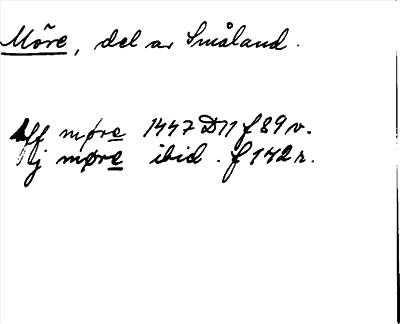 Möre, del av Småland.
aff møre 1447 D11 f 89 v.
j møre ibid. f 142 r.